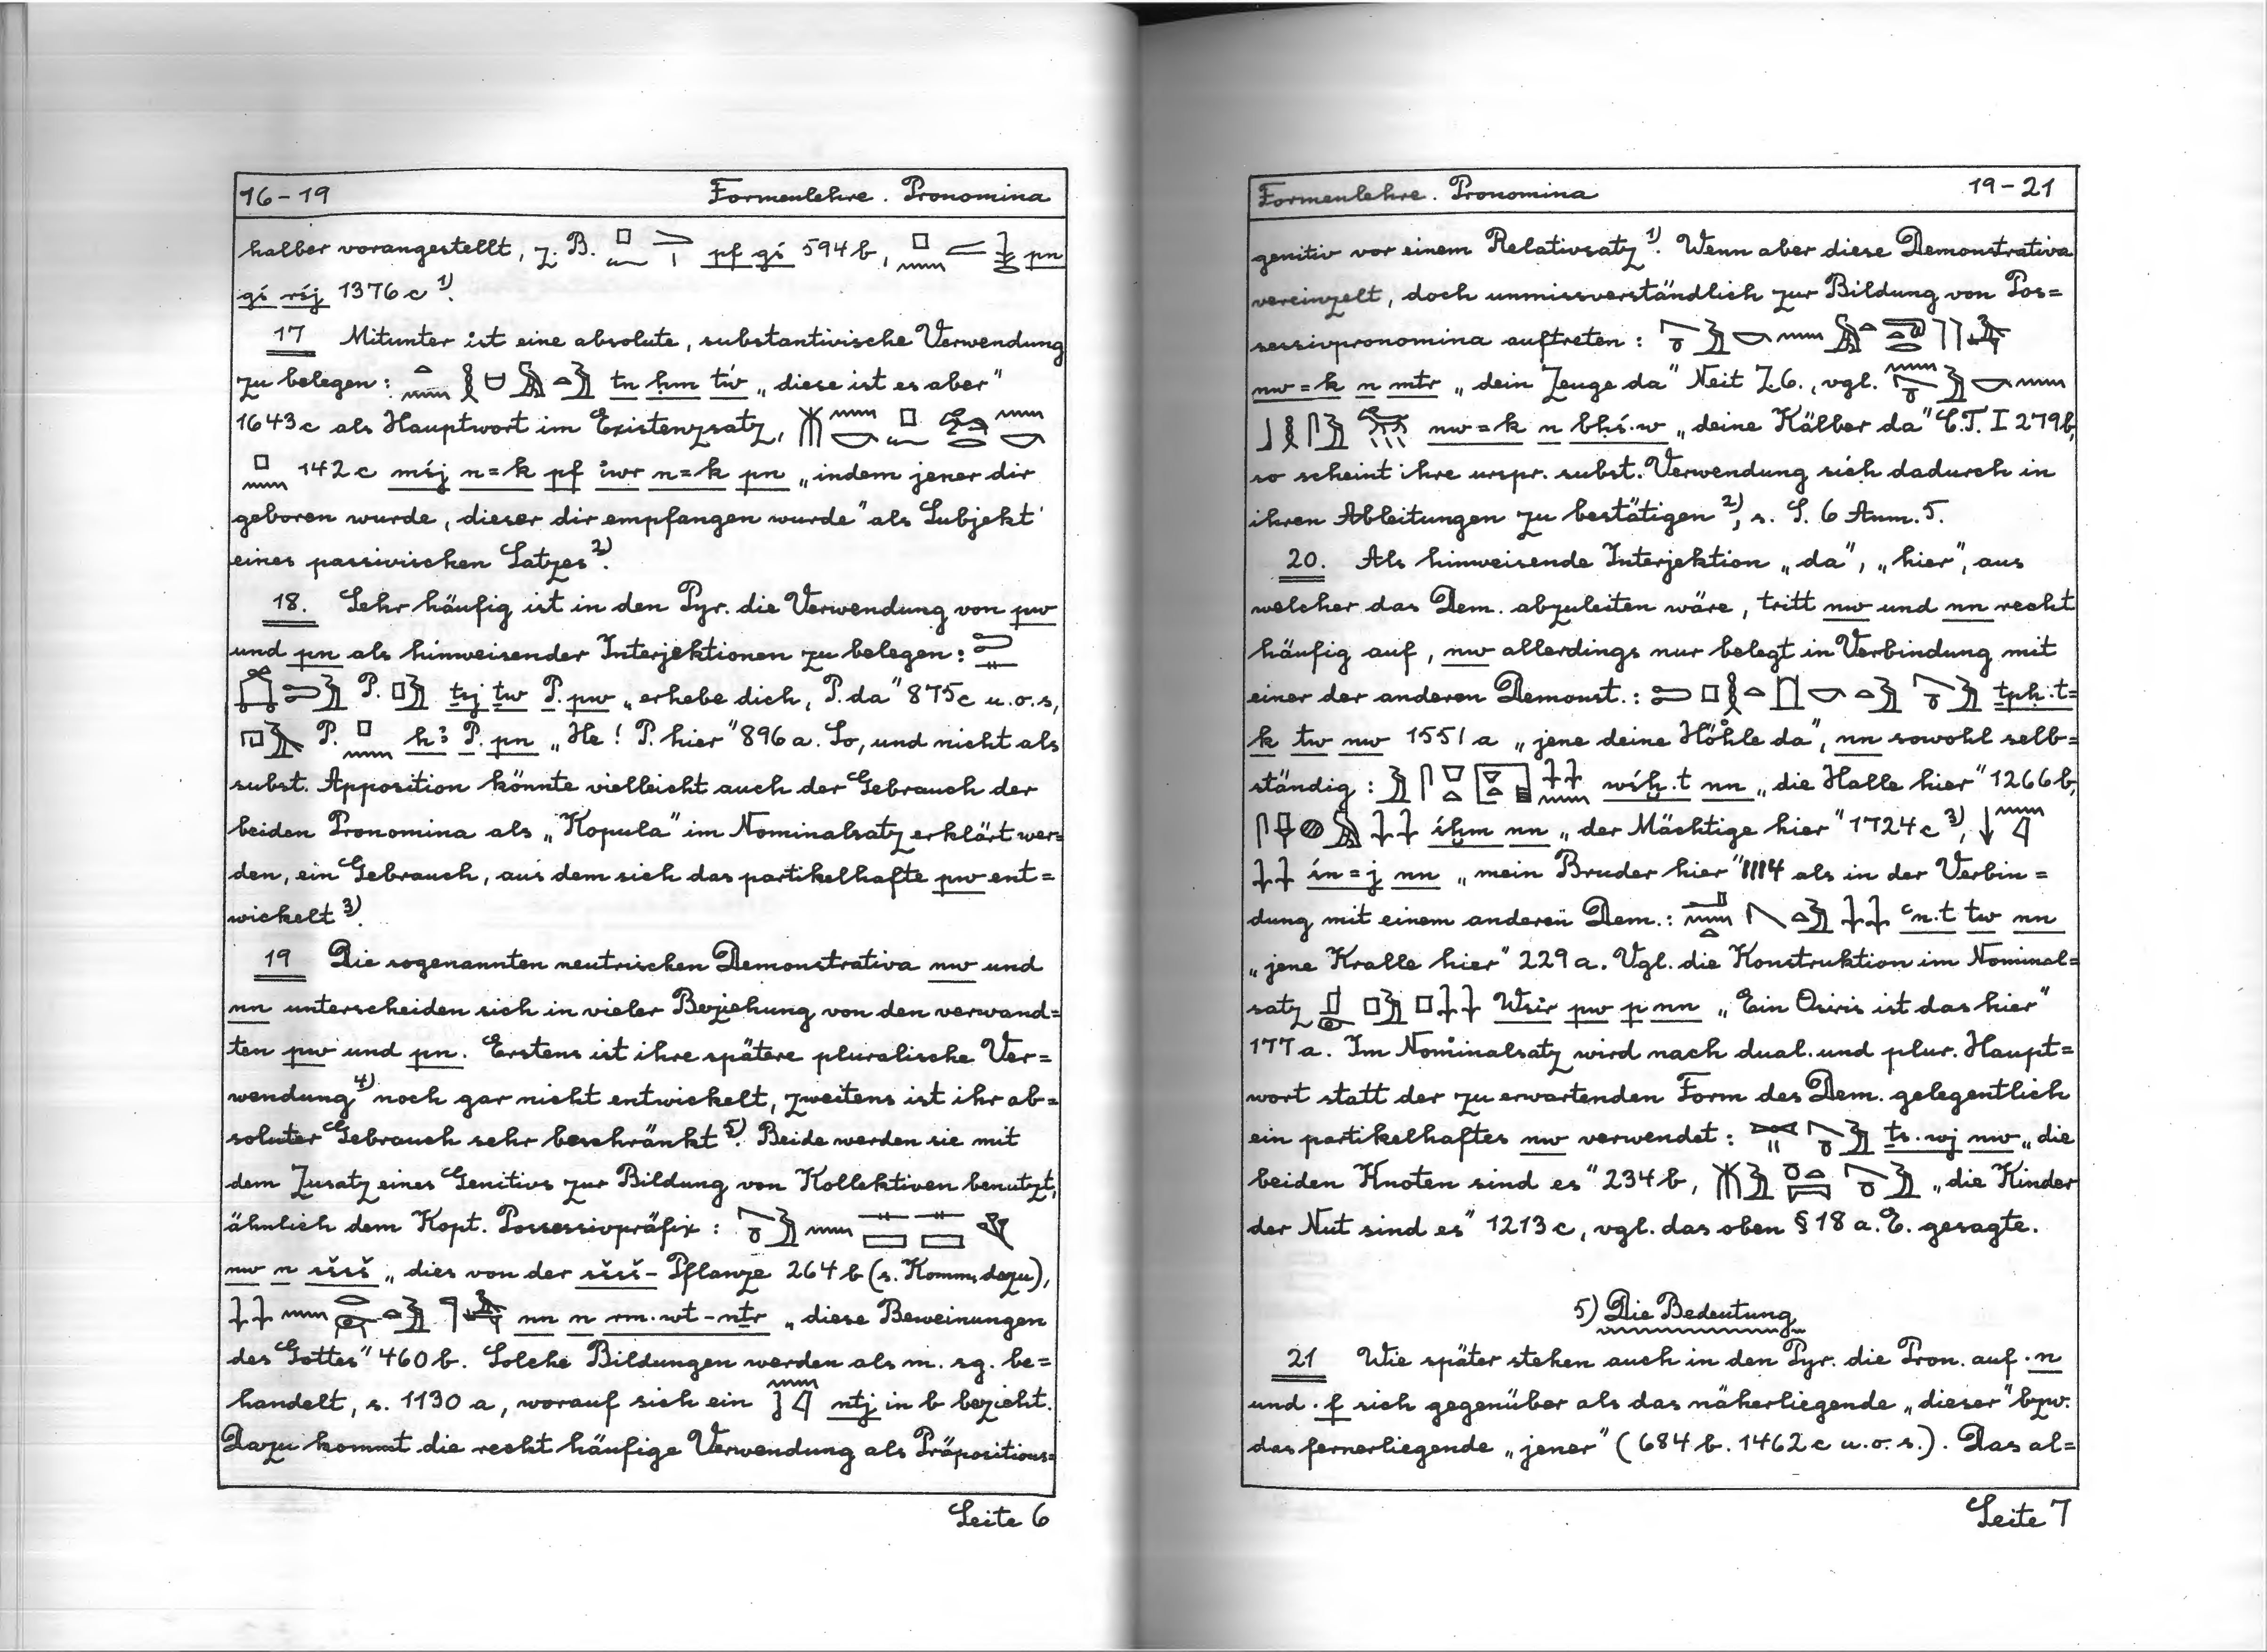 16-19 Formenlehre. Pronomina
halber vorangestellt, z.B. pf gś 594b, pn
gś rśj 1376c 1).
17 Mitunter ist eine absolute, substantivische Verwendung
zu belegen: tn ḥm tw „diese ist es aber"
1643c als Hauptwort im Existenzsatz,
142c mśj n=k pf iwr n=k pn „indem jener dir
geboren wurde, dieser dir empfangen wurde" als Subjekt
eines passivischen Satzes 2).
18. Sehr häufig ist in den Pyr. die Verwendung von pw
und pn als hinweisender Interjektionen zu belegen:
P. ṯsj ṯw P. pw „erhebe dich, P. da" 875c u.o.s,
P. hꜣ P. pn „He! P. hier" 896a. So, und nicht als
subst. Apposition könnte vielleicht auch der Gebrauch der
beiden Pronomina als „Kopula" im Nominalsatz erklärt wer=
den, ein Gebrauch, aus dem sich das partikelhafte pw ent=
wickelt 3).
19 Die sogenannten neutrischen Demonstrativa nw und
nn unterscheiden sich in vieler Beziehung von den verwand=
ten pw und pn. Erstens ist ihre spätere pluralische Ver=
wendung 4) noch gar nicht entwickelt, zweitens ist ihr ab=
soluter Gebrauch sehr beschränkt 5). Beide werden sie mit
dem Zusatz eines Genitivs zur Bildung von Kollektiven benutzt,
ähnlich dem Kopt. Possessivpräfix:
nw n sšsš „dies von der sšsš-Pflanze 264b (s. Komm. dazu),
nn n rm.wt-nṯr „diese Beweinungen
des Gottes" 460b. Solche Bildungen werden als m. sg. be=
handelt, s. 1130a, worauf sich ein ntj in b bezieht.
Dazu kommt die recht häufige Verwendung als Präpositions=
Seite 6
Formenlehre. Pronomina 19-21
genitiv vor einem Relativsatz 1). Wenn aber diese Demonstrativa
vereinzelt, doch unmissverständlich zur Bildung von Pos=
sessivpronomina auftreten:
nw=k n mtr „dein Zeuge da" Neit Z.6., vgl.
nw=k n bḥś.w „deine Kälber da" C.T. I 279b,
so scheint ihre urspr. subst. Verwendung sich dadurch in
ihren Ableitungen zu bestätigen 2), s. S. 6 Anm. 5.
20. Als hinweisende Interjektion „da", „hier", aus
welcher das Dem. abzuleiten wäre, tritt nw und nn recht
häufig auf, nw allerdings nur belegt in Verbindung mit
einer der anderen Demonst.: ṯpḥ.t=
k tw nw 1551a „jene deine Höhle da", nn sowohl selb=
ständig: wśḫ.t nn „die Halle hier" 1266b,
śḫm nn „der Mächtige hier" 1724c 3),
śn=j nn „mein Bruder hier" 1114 als in der Verbin=
dung mit einem anderen Dem.: ꜥn.t tw nn
„jene Kralle hier" 229a. Vgl. die Konstruktion im Nominal=
satz Wsir pw p nn „Ein Osiris ist das hier"
177a. Im Nominalsatz wird nach dual. und plur. Haupt=
wort statt der zu erwartenden Form des Dem. gelegentlich
ein partikelhaftes nw verwendet: ṯs.wj nw „die
beiden Knoten sind es" 234b, „die Kinder
der Nut sind es" 1213c, vgl. das oben § 18 a.E. gesagte.
5) Die Bedeutung
21 Wie später stehen auch in den Pyr. die Pron. auf .n
und .f sich gegenüber als das näherliegende „dieser" bzw.
das fernerliegende „jener" (684b. 1462c u.o.s.). Das al=
Seite 7